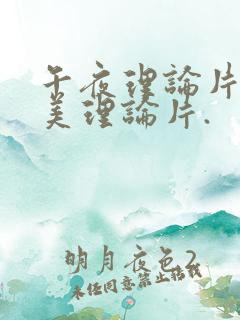 午夜理論片
美理論片.
明月夜色2
未经同意禁止搭我